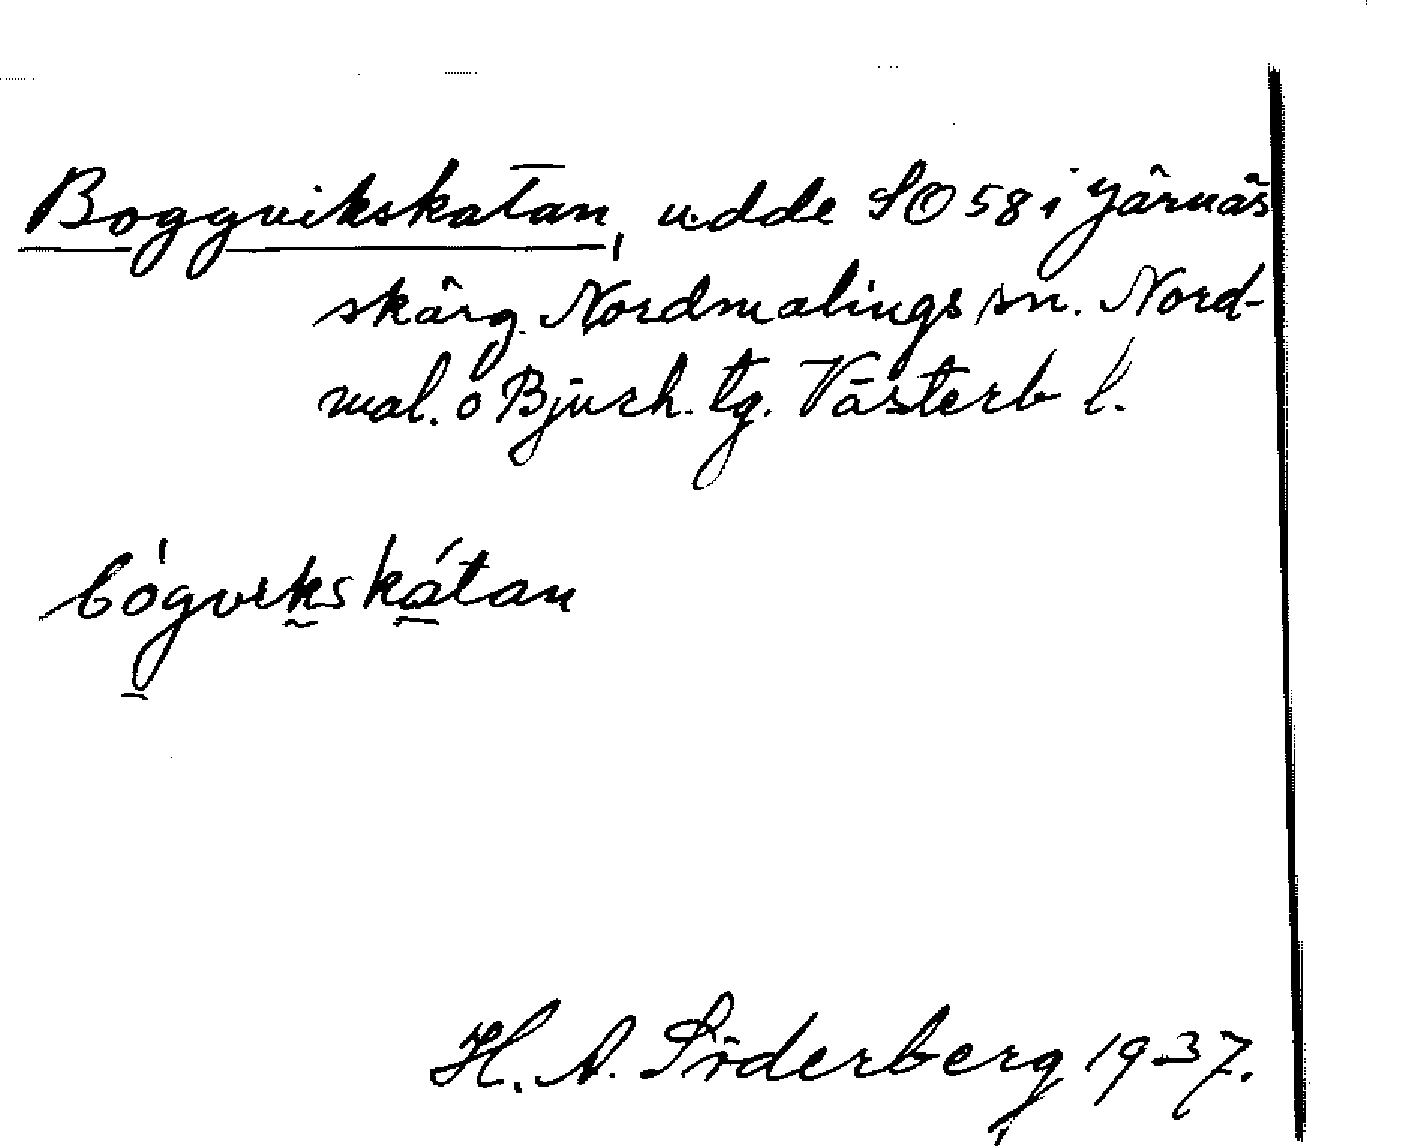 Boggvikskatan, udde SO 58 i Järnäs
skärg. Nordmalings sn. Nord-
mal. o Bjurh. tg. Västerb l.
bógvikskátan
H. A. Söderberg 1937.